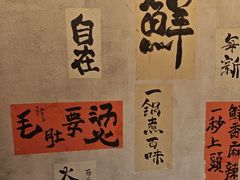 自在
鮮
毛肚要燙
一鍋煮百味
鮮香麻辣
一秒上頭
火